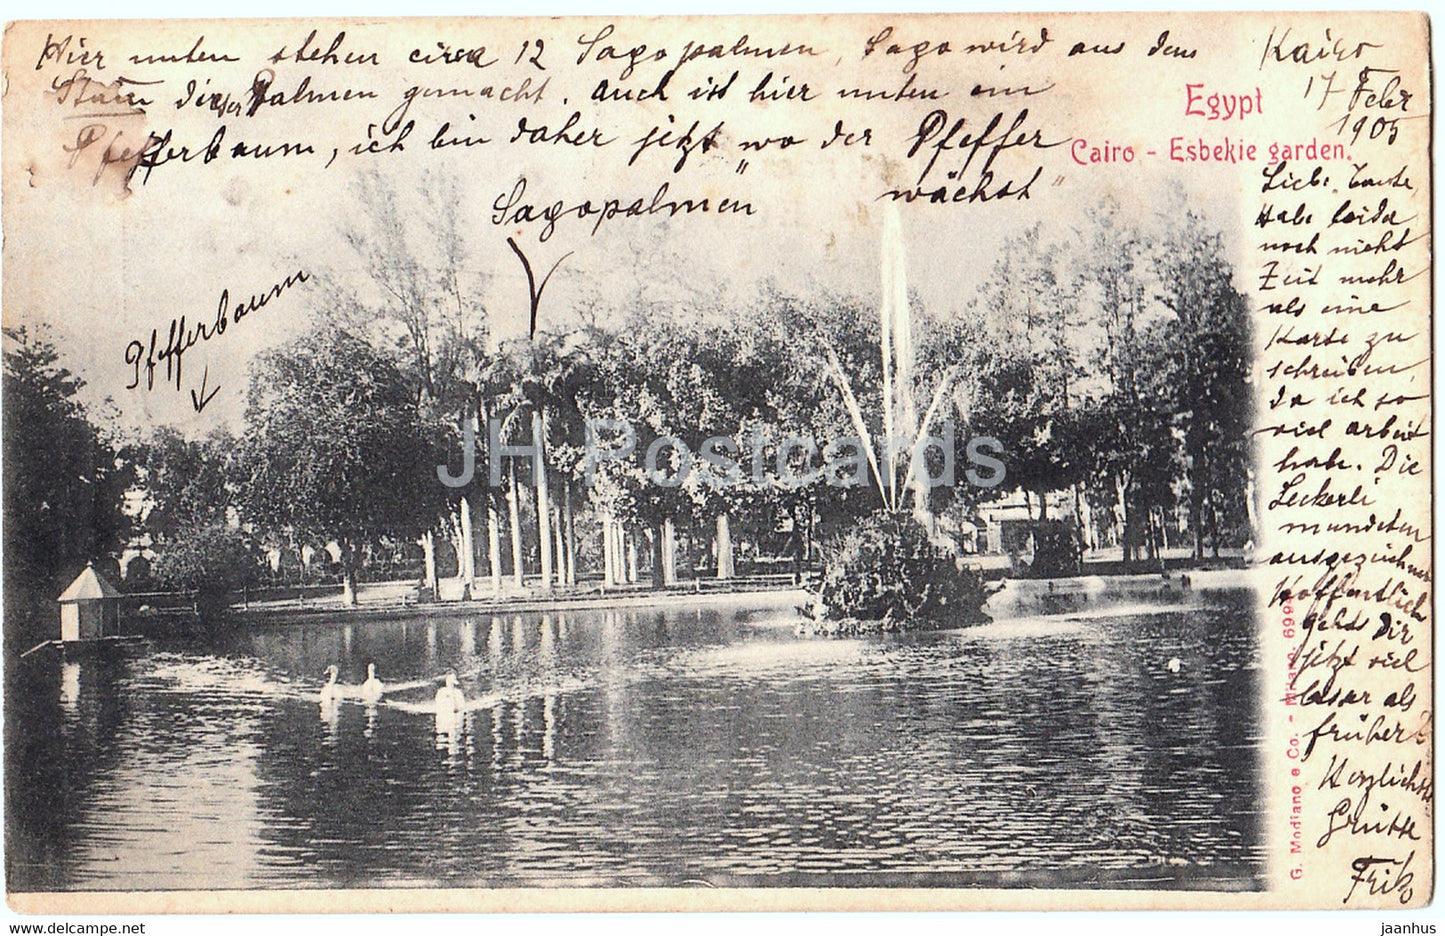 Hier unten stehen circa 12 Sagopalmen, Sago wird aus dem
Stam dieser Palmen gemacht. Auch ist hier unten ein
Pfefferbaum, ich bin daher jetzt "wo der Pfeffer
wächst"
Sagopalmen
Pfefferbaum
Egypt
Cairo - Esbekie garden.
Kairo
17 Febr
1905
Liebe Tante,
Habe leider
noch nicht
Zeit mehr
als eine
Karte zu
schreiben,
da ich so
viel arbeit
habe. Die
Leckerli
mundeten
ausgezeichnet
Hoffentlich
gehts Dir
jetzt viel
besser als
früher
Herzlichste
Grüsse
Fritz
G. Modiano e Co. - Milano 699
JH Postcards
jaanhus